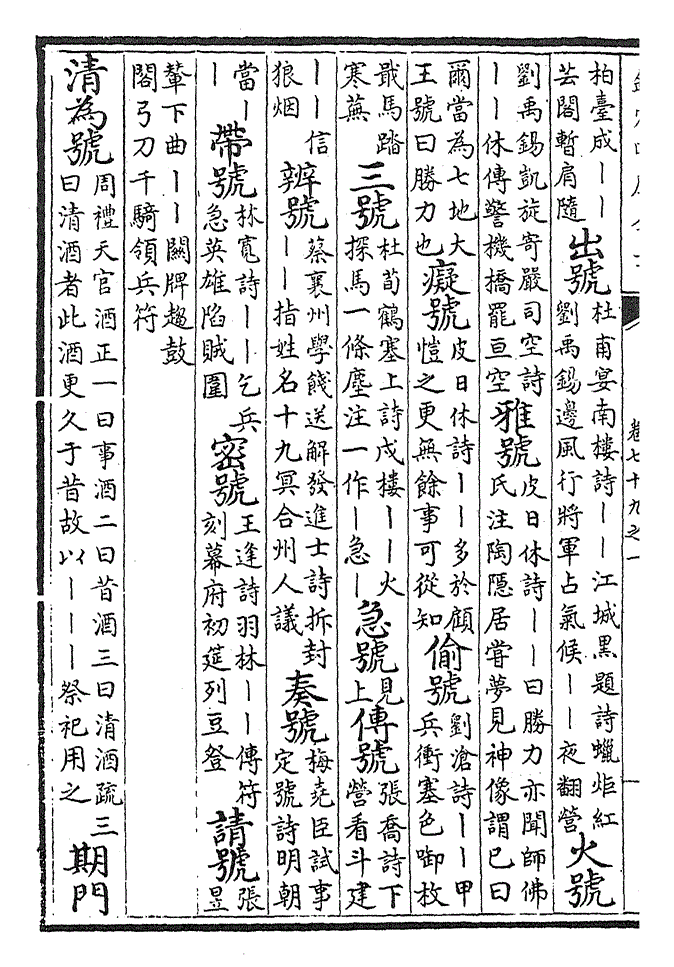 卷七十九之一
柏臺成丨丨芸閣暫肩隨 出號 杜甫宴南樓詩丨丨江城黑題詩蠟炬紅劉禹錫邊風行將軍占氣候丨丨夜翻營 火號
劉禹錫凱旋寄嚴司空詩丨丨休傳警機橋罷亘空 雅號 皮日休詩丨丨曰勝力亦聞師佛氏注陶隱居嘗夢見神像謂已曰
爾當為七地大王號曰勝力也 癡號 皮日休詩丨丨多於顧愷之更無餘事可從知 偷號 劉滄詩丨丨甲兵衝塞色啣枚
戢馬踏寒蕪 三號 杜荀鶴塞上詩戍樓丨丨火探馬一條塵注一作丨急丨 急號 見上 傳號 張喬詩下營看斗建
丨丨信狼烟 辨號 蔡襄州學餞送解發進士詩拆封丨丨指姓名十九冥合州人議 奏號 梅堯臣試事定號詩明朝
當丨丨 帶號 林寬詩丨丨乞兵急英雄陷賊圍 密號 王逢詩羽林丨丨傳符刻幕府初筵列豆登 請號 張昱
輦下曲丨丨闗牌趨鼓閣弓刀千騎領兵符
清為號 周禮天官酒正一曰事酒二曰昔酒三曰清酒疏三曰清酒者此酒更久于昔故以丨丨丨祭祀用之 期門